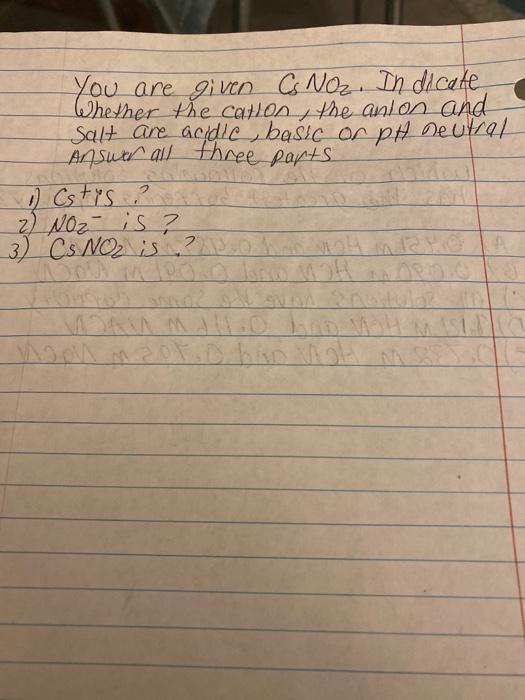 You are given CsNO2. Indicate
Whether the cation, the anion and
Salt are acidic, basic or pH neutral
Answer all three parts
1) Cs+ is ?
2) NO2- is ?
3) CsNO2 is ?